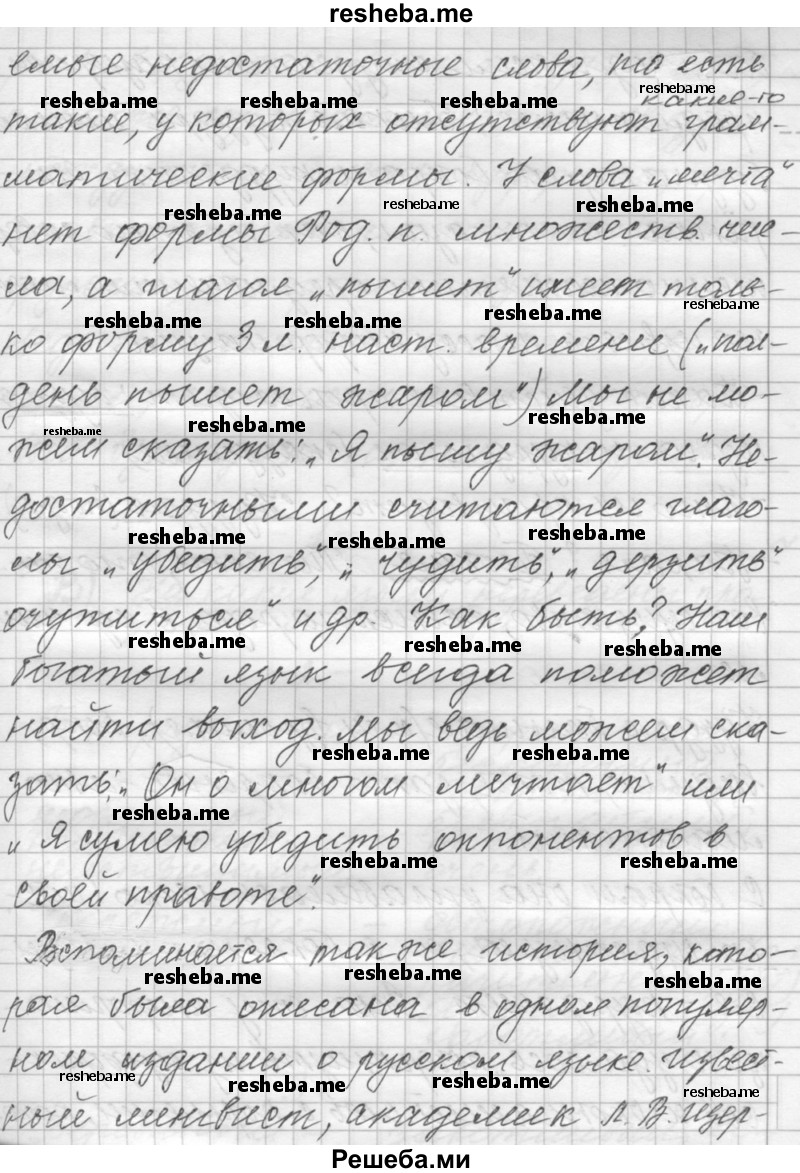 resheba.me
емые недостаточные слова, то есть
resheba.me resheba.me resheba.me resheba.me
какие-то
такие, у которых отсутствуют грам-
матические формы. У слова „мечта"
resheba.me resheba.me resheba.me
нет формы Род. п. множеств. чис-
ла, а глагол „пышет" имеет толь-
resheba.me resheba.me resheba.me resheba.me
ко форму 3 л. наст. времени („пол-
день пышет жаром") Мы не мо-
resheba.me resheba.me resheba.me
жем сказать: „Я пышу жаром". Не-
достаточными считаются глаго-
resheba.me resheba.me resheba.me
лы „убедить", „чудить", „дерзить"
очутиться" и др. Как быть? Наш
resheba.me resheba.me resheba.me
богатый язык всегда поможет
найти выход. Мы ведь можем ска-
resheba.me resheba.me
зать: „Он о многом мечтает" или
resheba.me
„Я сумею убедить оппонентов в
resheba.me resheba.me
своей правоте".
Вспоминается также история, кото-
resheba.me resheba.me resheba.me
рая была описана в одном популяр-
ном издании о русском языке. Извест-
resheba.me resheba.me resheba.me resheba.me
ный лингвист, академик Л. В. Щер-
Решеба.ми